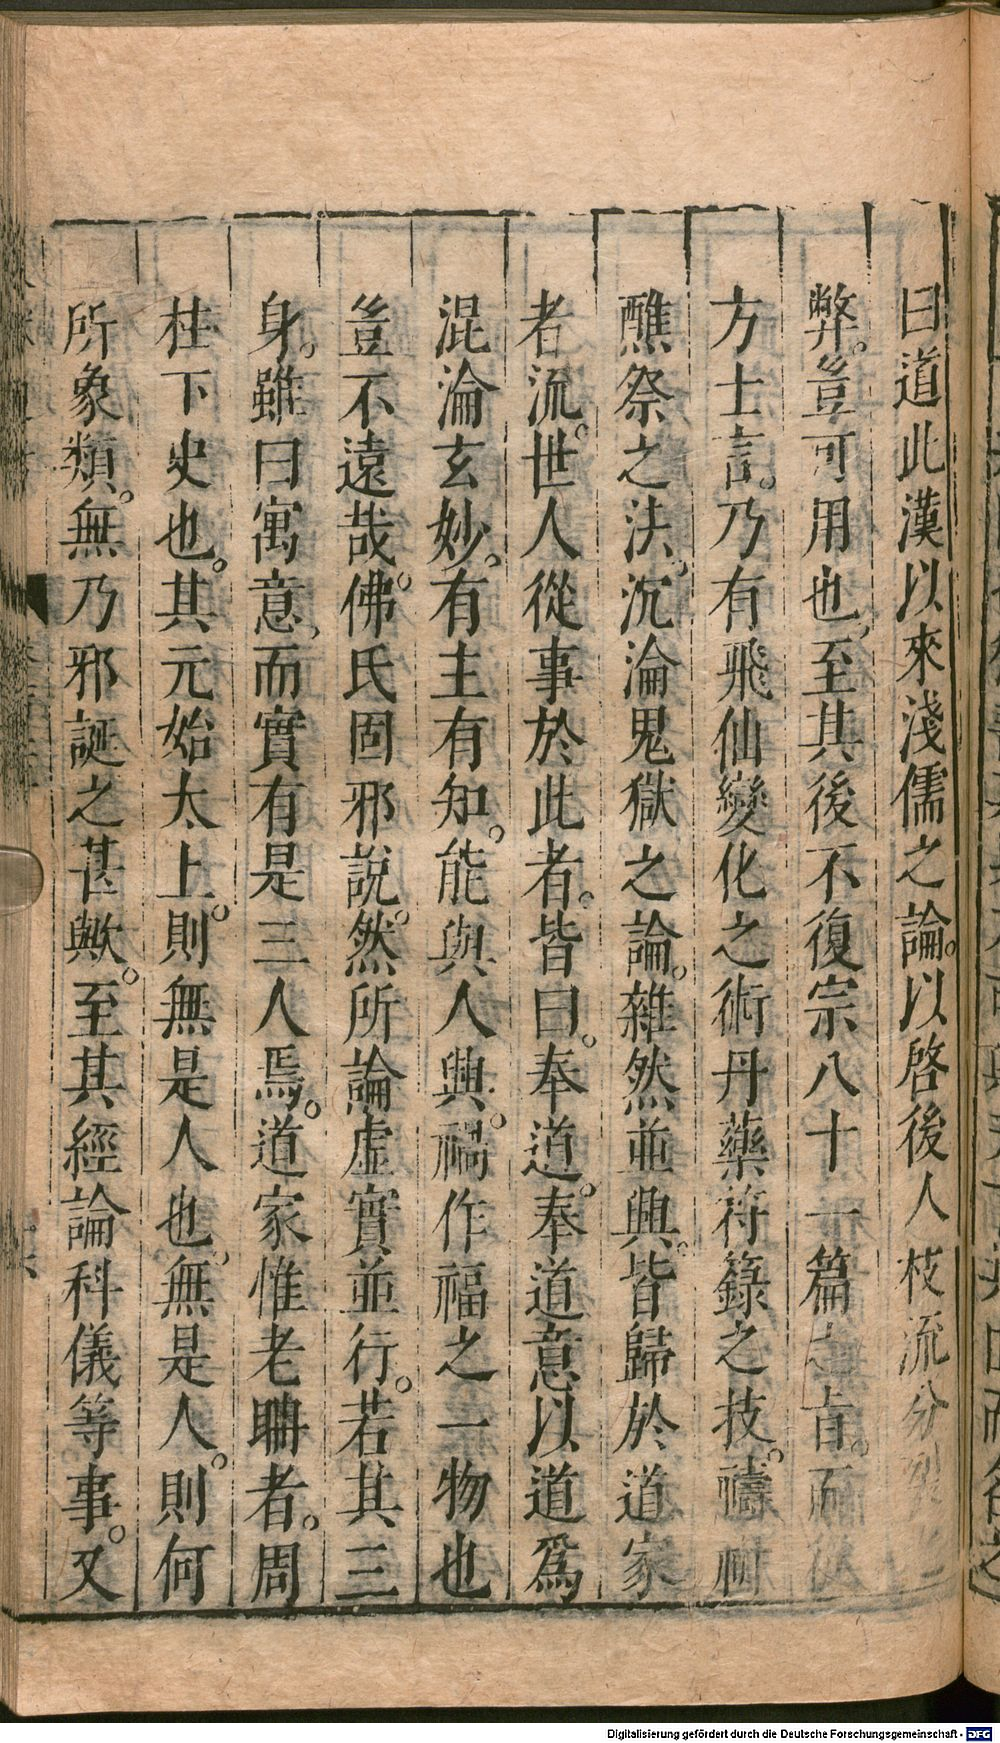 曰道此漢以來淺儒之論。以啓後人枝流分
弊。豈可用也、至其後不復宗八十一篇之旨。而
方士言。乃有飛仙變化之術丹藥符籙之技。禱祠
醮祭之法、沉淪鬼獄之論。雜然並興。皆歸於道家
者流。世人從事於此者。皆曰。奉道。奉道意以道爲
混淪玄妙。有主有知。能與人興。禍作福之一物也
豈不遠哉。佛氏固邪說。然所論虛實並行。若其三
身。雖曰寓意、而實有是三人焉。道家惟老聃者。周
柱下史也。其元始太上。則無是人也、無是人。則何
所象類。無乃邪誕之甚歟。至其經論科儀等事。又
Digitalisierung gefördert durch die Deutsche Forschungsgemeinschaft - DFG